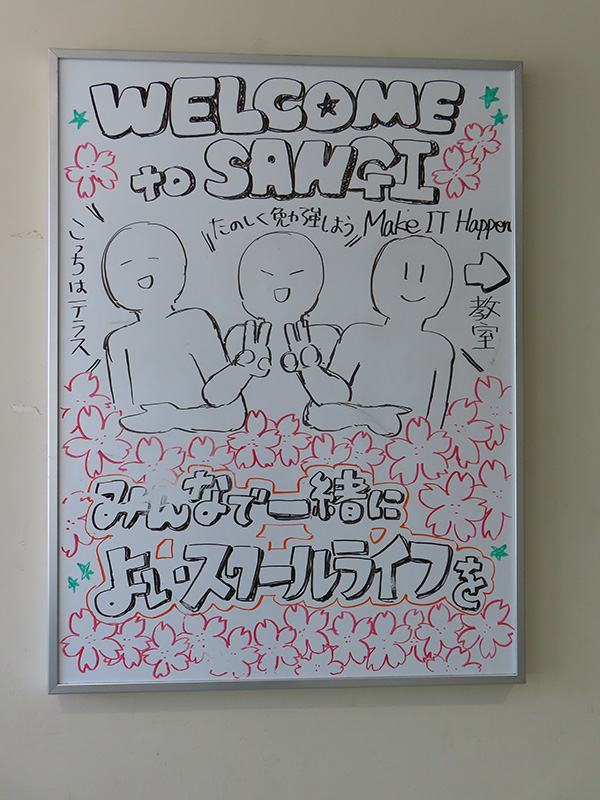 WELCOME
to SANGI
たのしく勉強しよう Make IT Happen
こっちはテラス
教室
みんなで一緒に
よいスクールライフを